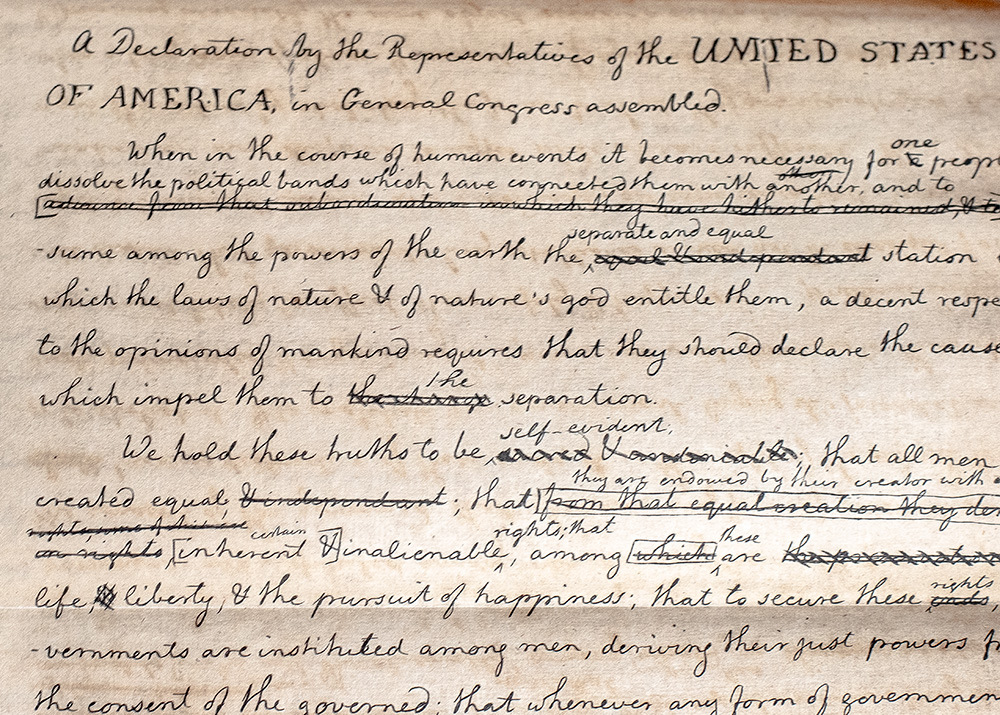 A Declaration by the Representatives of the UNITED STATES
OF AMERICA, in General Congress assembled.
When in the course of human events it becomes necessary for
one
a peop
dissolve the political bands which have connected them with another, and to
advance from that subordination in which they have hitherto remained, & to
separate and equal
-sume among the powers of the earth the equal & independant station
which the laws of nature & of nature's god entitle them, a decent respe
to the opinions of mankind requires that they should declare the cause
the
which impel them to the change separation.
self-evident,
We hold these truths to be sacred & undeniable; that all men
they are endowed by their creator with
created equal & independant; that from that equal creation they der
rights, some of which are
certain
rights; that
these
on rights [inherent &] inalienable, among which are the preservation
rights
life, liberty, & the pursuit of happiness; that to secure these ends,
-vernments are instituted among men, deriving their just powers fr
the consent of the governed; that whenever any form of governmen